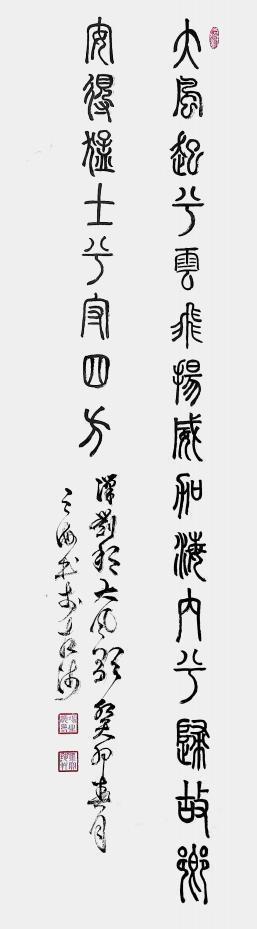 大風起兮雲飛揚威加海內兮歸故鄉
安得猛士兮守四方
漢劉邦大風歌癸卯春月